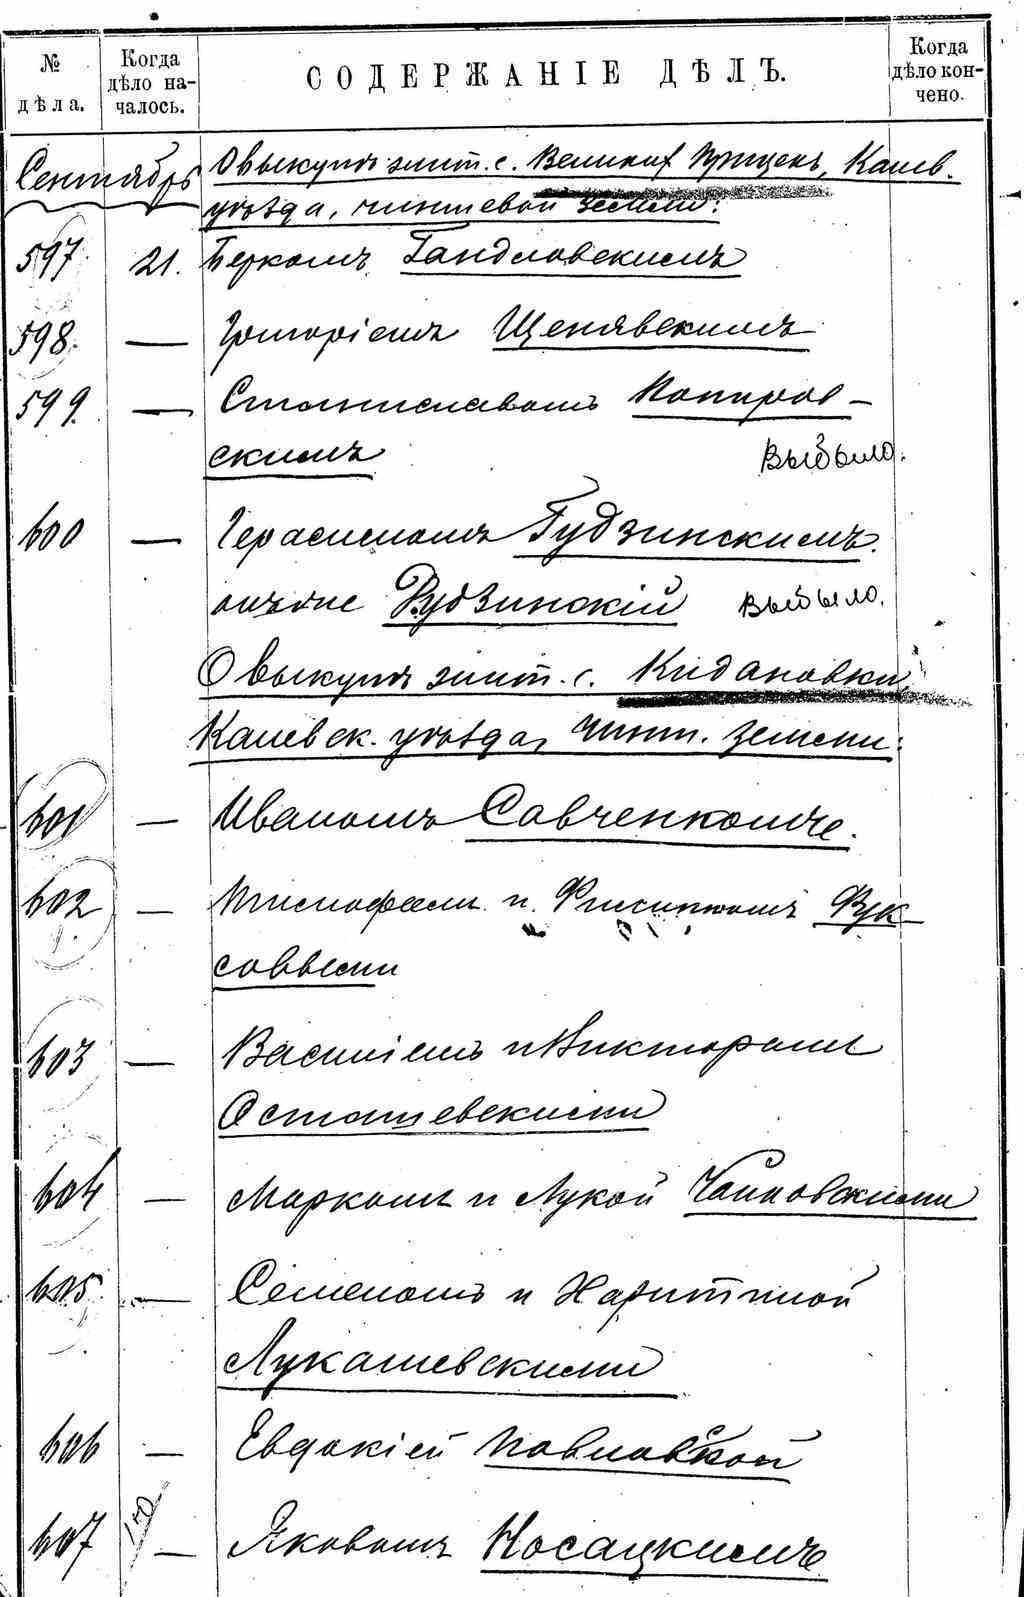 № дѣла.
Когда дѣло на-
чалось.
СОДЕРЖАНІЕ ДѢЛЪ.
Когда дѣло кон-
чено.
Сентябрь
О выкупѣ жит. с. Великих Прицек, Канев.
уѣзда, чиншевой земли:
597. 21. Берком Гандловским
598. — Григоріем Щенявским
599. — Станиславом
ским Выбыло.
600 — Герасимом Гудзинскимъ.
Рудзинскій Выбыло.
О выкупѣ жит. с. Кидановки,
Каневск. уѣзда, чинш. земли:
601 — Иваномъ Савченкомъ.
602 — и Филиппом Фук-
совыми
603 — Василіем и Виктором
Осташевскими
604 — Марком и Лукой
605. — Семеном и Харитиной
Лукашевскими
606 — Евдокіей Павловской
607 — Яковом Носацким